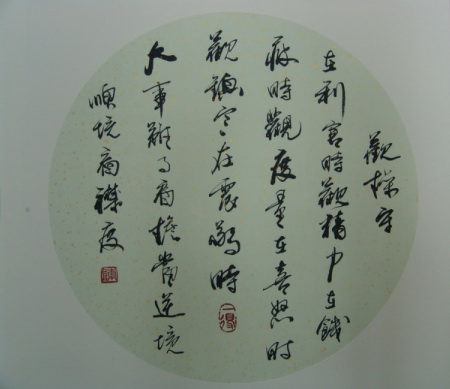 觀操守
在利害時觀精力在饑
疲時觀度量在喜怒時
觀鎮定在震驚時
大事難事看擔當逆境
順境看襟度